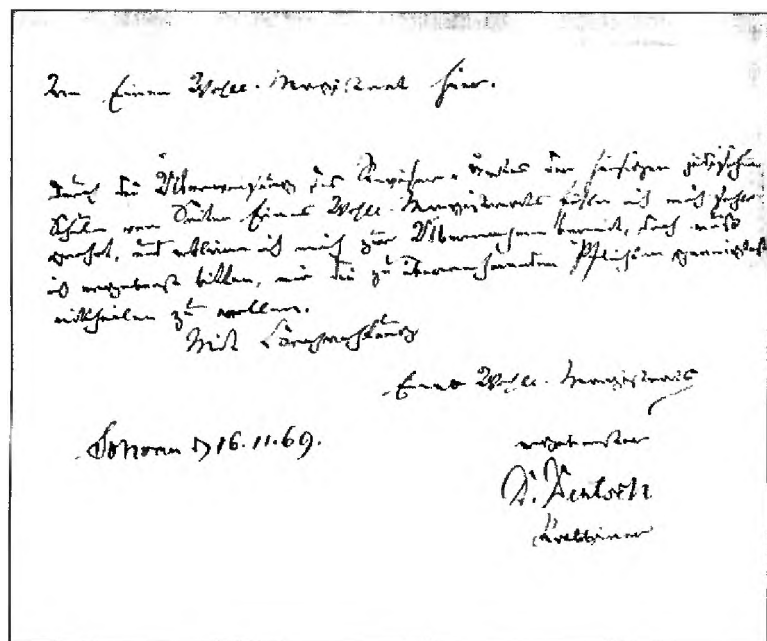 An Einen Wohll. Magistrat hier.
Durch die Überweisung des Revisor-Amtes der hiesigen jüdischen
Schule von Seiten Eines Wohll. Magistrats fühle ich mich sehr
geehrt, und erkläre ich mich zur Übernahme bereit, doch muß
ich ergebenst bitten, mir die zu übernehmenden Pflichten
mittheilen zu wollen.
Mit Hochachtung
Eines Wohll. Magistrats
16.11.69.
ergebenster
Rabbiner